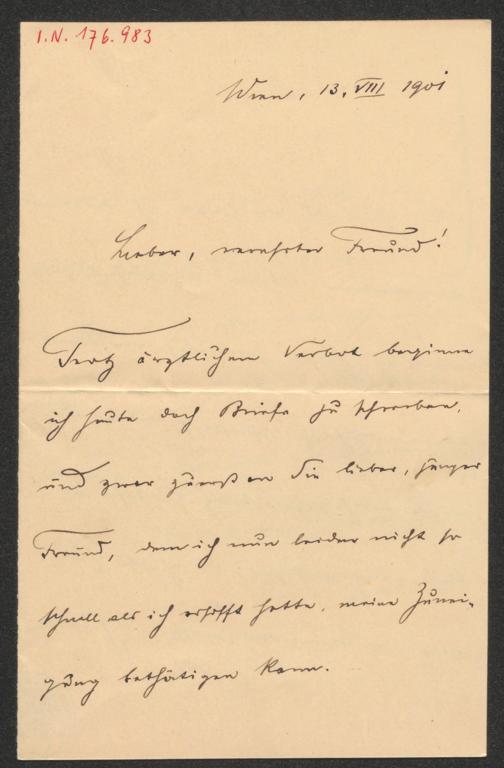 I.N. 176.983
Wien, 13. VIII 1901
Lieber, verehrter Freund!
Trotz ärztlichem Verbot beginne
ich heute doch Briefe zu schreiben,
und zwar zuerst an Sie lieber, junger
Freund, dem ich nun leider nicht so
schnell als ich erhofft hatte, meine Zunei-
gung bethätigen kann.